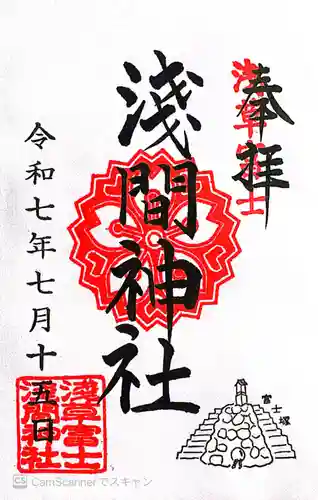 奉拝
浅草富士
淺間神社
令和七年七月十五日
富士塚
淺草富士
淺間神社
CS CamScannerでスキャン